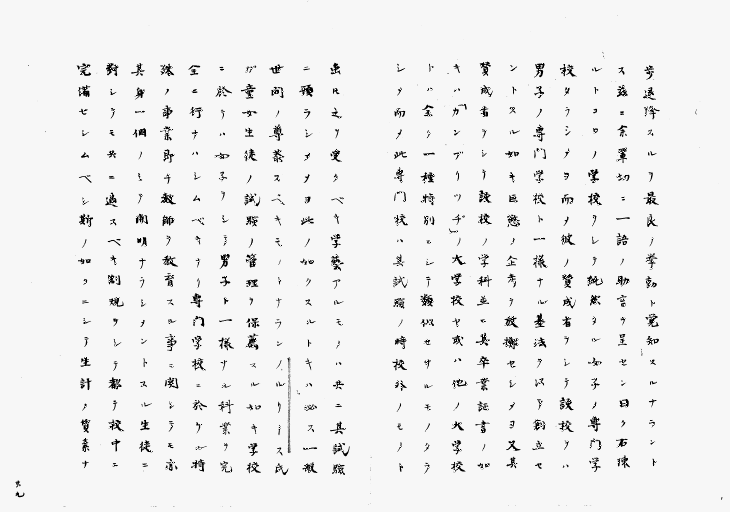 歩退陣スルヲ最良ノ挙動ト覚知スルナラント
ス茲ニ余輩切ニ一語ノ助言ヲ呈セン曰ク右陳
ルトコロノ学校ヲシテ純然タル女子ノ専門学
校タラシメヨ而メ彼ノ賛成者ヲシテ該校ヲハ
男子ノ専門学校ト一様ナル基法ヲ以テ創立セ
ントスル如キ巨憊ノ企考ヲ放擲セシメヨ又其
賛成者ヲシテ該校ノ学科並ニ其卒業証書ノ如
キハ「カンブリツヂ」ノ大学校ヤ或ハ他ノ大学校
トハ全ク一種特別ニシテ類似セサルモノタラ
シメ而メ此専門校ハ其試験ノ時校外ノモノト
雖ドモ之ヲ受クベキ学藝アルモノハ共ニ其試験
ニ預ラシメヨ此ノ如クスルトキハ必ス一般
世間ノ尊慕スベキモノトナランノルリテス氏
ガ童女生徒ノ試験ノ管理ヲ保薦スル如キ学校
ニ於テハ女子ヲシテ男子ト一様ナル科業ヲ完
全ニ行ナハシムベキナリ専門学校ニ於ケル特
殊ノ事業即チ教師ヲ教育スル事ニ関シテモ亦
其身一個ノミヲ開明ナラシメントスル生徒ニ
対シテモ共ニ適スベキ割規ヲシテ都テ校中ニ
完備セシムベシ斯ノ如クニシテ生計ノ資素ナ